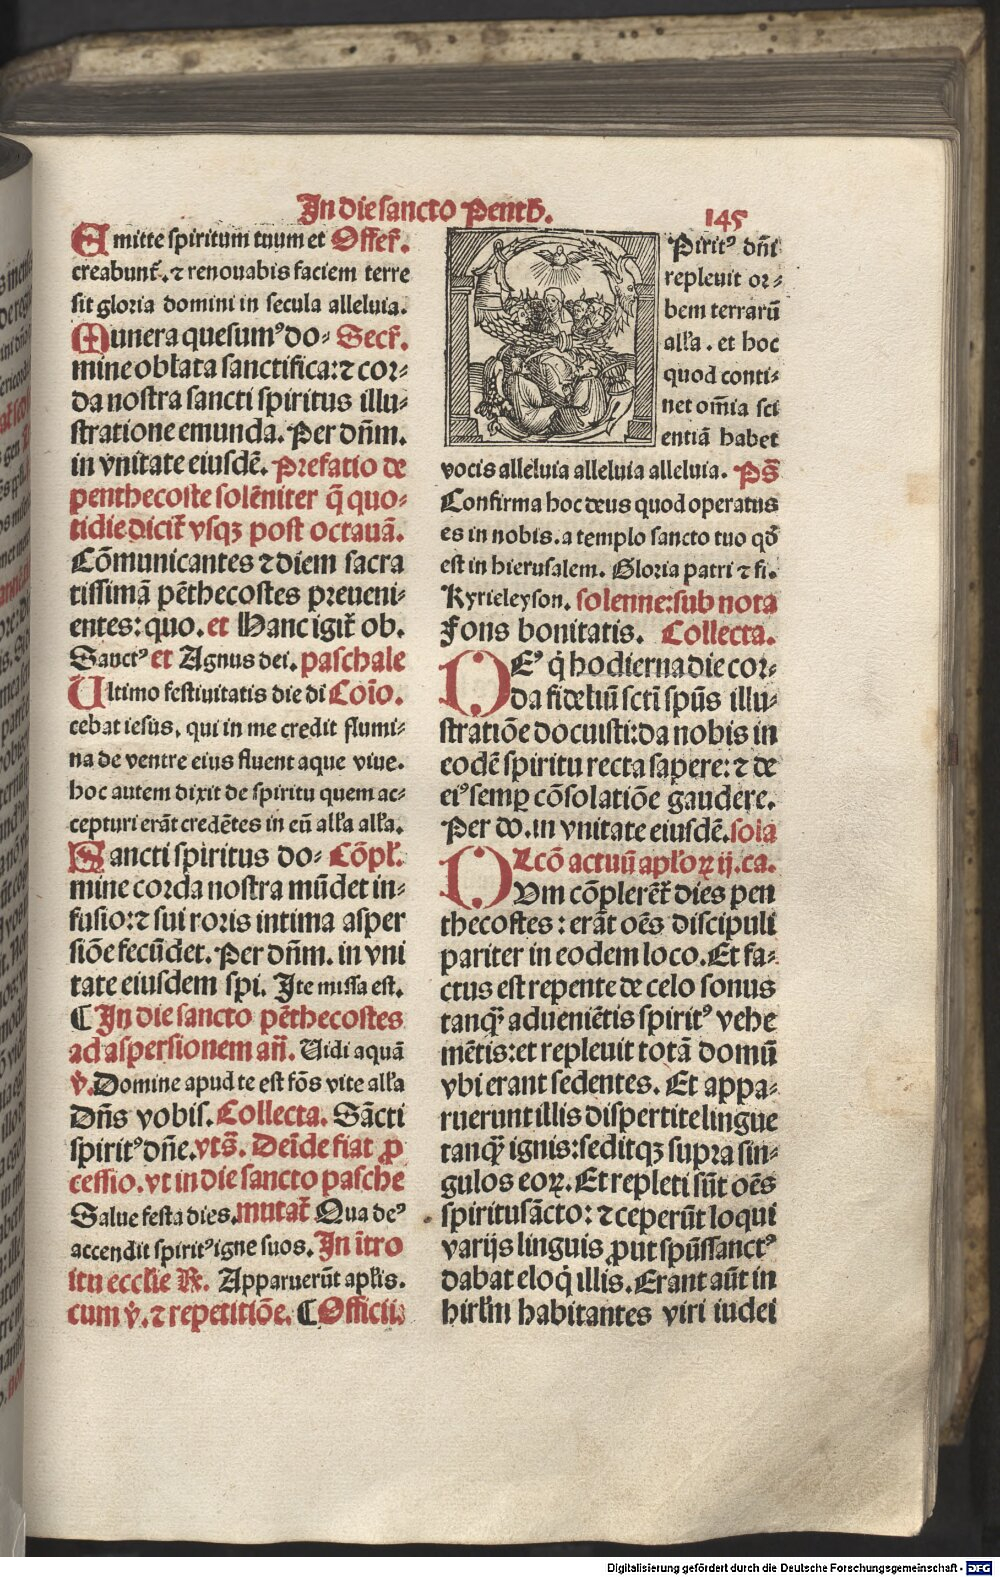 In die sancto Penth̄.
145
Emitte spiritum tuum et Offer̄.
creabunt̄. ⁊ renouabis faciem terre
sit gloria domini in secula alleluia.
Munera quesumꝰ do- Secr̄.
mine oblata sanctifica: ⁊ cor-
da nostra sancti spiritus illu-
stratione emunda. Per dn̄m.
in vnitate eiusdē. Prefatio de
penthecoste solēniter q̄ quo-
tidie dicit̄ vsqꝫ post octauā.
Cōmunicantes ⁊ diem sacra
tissimā pēthecostes preueni-
entes: quo. et Hanc igit̄ ob.
Sanctꝰ et Agnus dei. paschale
Ultimo festiuitatis die di Coīo.
cebat iesus, qui in me credit flumi-
na de ventre eius fluent aque viue.
hoc autem dixit de spiritu quem ac-
cepturi erāt credētes in eū all'a all'a.
Sancti spiritus do- Cōpl'.
mine corda nostra mūdet in-
fusio: ⁊ sui roris intima asper
siōe fecūdet. Per dn̄m. in vni
tate eiusdem spi. Ite missa est.
¶ In die sancto pēthecostes
ad aspersionem an̄. Uidi aquā
v̇. Domine apud te est fōs vite all'a
Dn̄s vobis. Collecta. Sācti
spiritꝰ dn̄e. vts̄. Deīde fiat ꝓ
cessio. vt in die sancto pasche
Salue festa dies. mutat̄ Qua deꝰ
accendit spiritꝰ igne suos. In ītro
itu ecclie ℟. Apparuerūt apl'is.
cum v̇. ⁊ repetitiōe. ¶ Officiū
Spiritꝰ dn̄i
repleuit or-
bem terrarū
all'a. et hoc
quod conti-
net om̄ia sci
entiā habet
vocis alleluia alleluia alleluia. Ps̄
Confirma hoc deus quod operatus
es in nobis. a templo sancto tuo qd̄
est in hierusalem. Gloria patri ⁊ fi.
Kyrieleyson. solenne: sub nota
Fons bonitatis. Collecta.
DEꝰ q̇ hodierna die cor-
da fideliū scti sp̄us illu-
stratiōe docuisti: da nobis in
eodē spiritu recta sapere: ⁊ de
eiꝰ semꝑ cōsolatiōe gaudere.
Per do. in vnitate eiusdē. sola
Lcō actuū apl'oꝝ ij. ca.
Cum cōplerēt̄ dies pen
thecostes: erāt oēs discipuli
pariter in eodem loco. Et fa-
ctus est repente de celo sonus
tanqꝫ̄ adueniētis spiritꝰ vehe
mētis: et repleuit totā domū
vbi erant sedentes. Et appa-
ruerunt illis dispertite lingue
tanqꝫ̄ ignis: seditqꝫ supra sin-
gulos eoꝝ. Et repleti sūt oēs
spiritu sācto: ⁊ ceperūt loqui
varijs linguis ꝓut sp̄ussanctꝰ
dabat eloq̇ illis. Erant aūt in
hirl'm habitantes viri iudei
Digitalisierung gefördert durch die Deutsche Forschungsgemeinschaft - DFG